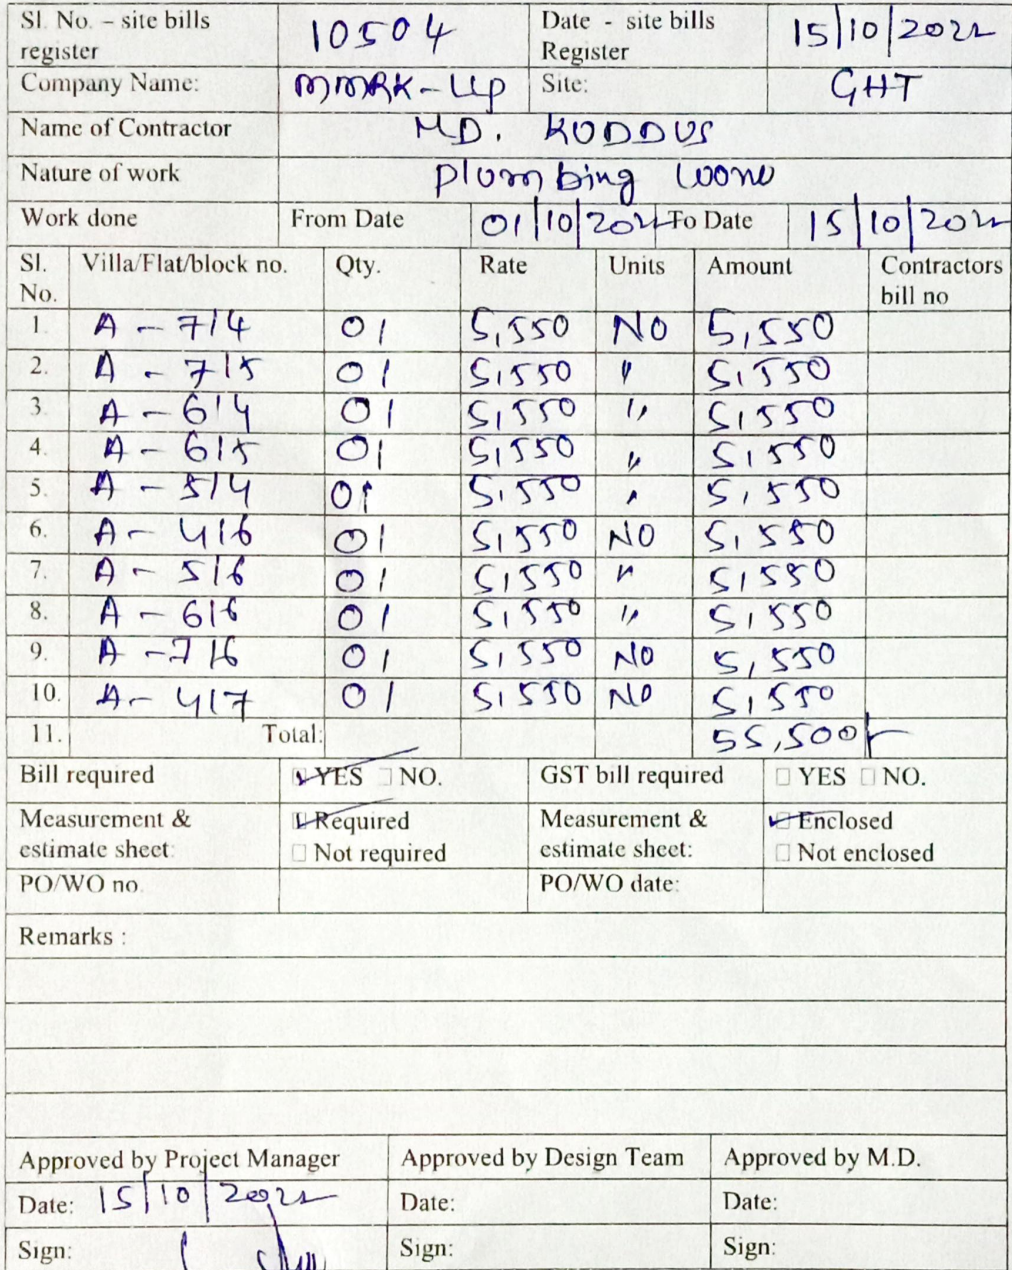 Sl. No. – site bills register 10504 Date - site bills Register 15/10/2022
Company Name: MMRK-Up Site: GHT
Name of Contractor MD. KUDDUS
Nature of work Plumbing
Work done From Date 01/10/2022 To Date 15/10/2022
Sl. No. Villa/Flat/block no. Qty. Rate Units Amount Contractors bill no
1. A - 714 01 5,550 NO 5,550
2. A - 715 01 5,550 " 5,550
3. A - 614 01 5,550 " 5,550
4. A - 615 01 5,550 " 5,550
5. A - 514 01 5,550 " 5,550
6. A - 416 01 5,550 NO 5,550
7. A - 516 01 5,550 " 5,550
8. A - 616 01 5,550 " 5,550
9. A - 716 01 5,550 NO 5,550
10. A - 417 01 5,550 NO 5,550
11. Total: 55,500/-
Bill required YES NO. GST bill required YES NO.
Measurement & estimate sheet: Required Measurement & estimate sheet: Enclosed
Not required Not enclosed
PO/WO no. PO/WO date:
Remarks :
Approved by Project Manager Approved by Design Team Approved by M.D.
Date: 15/10/2022 Date: Date:
Sign: Sign: Sign: